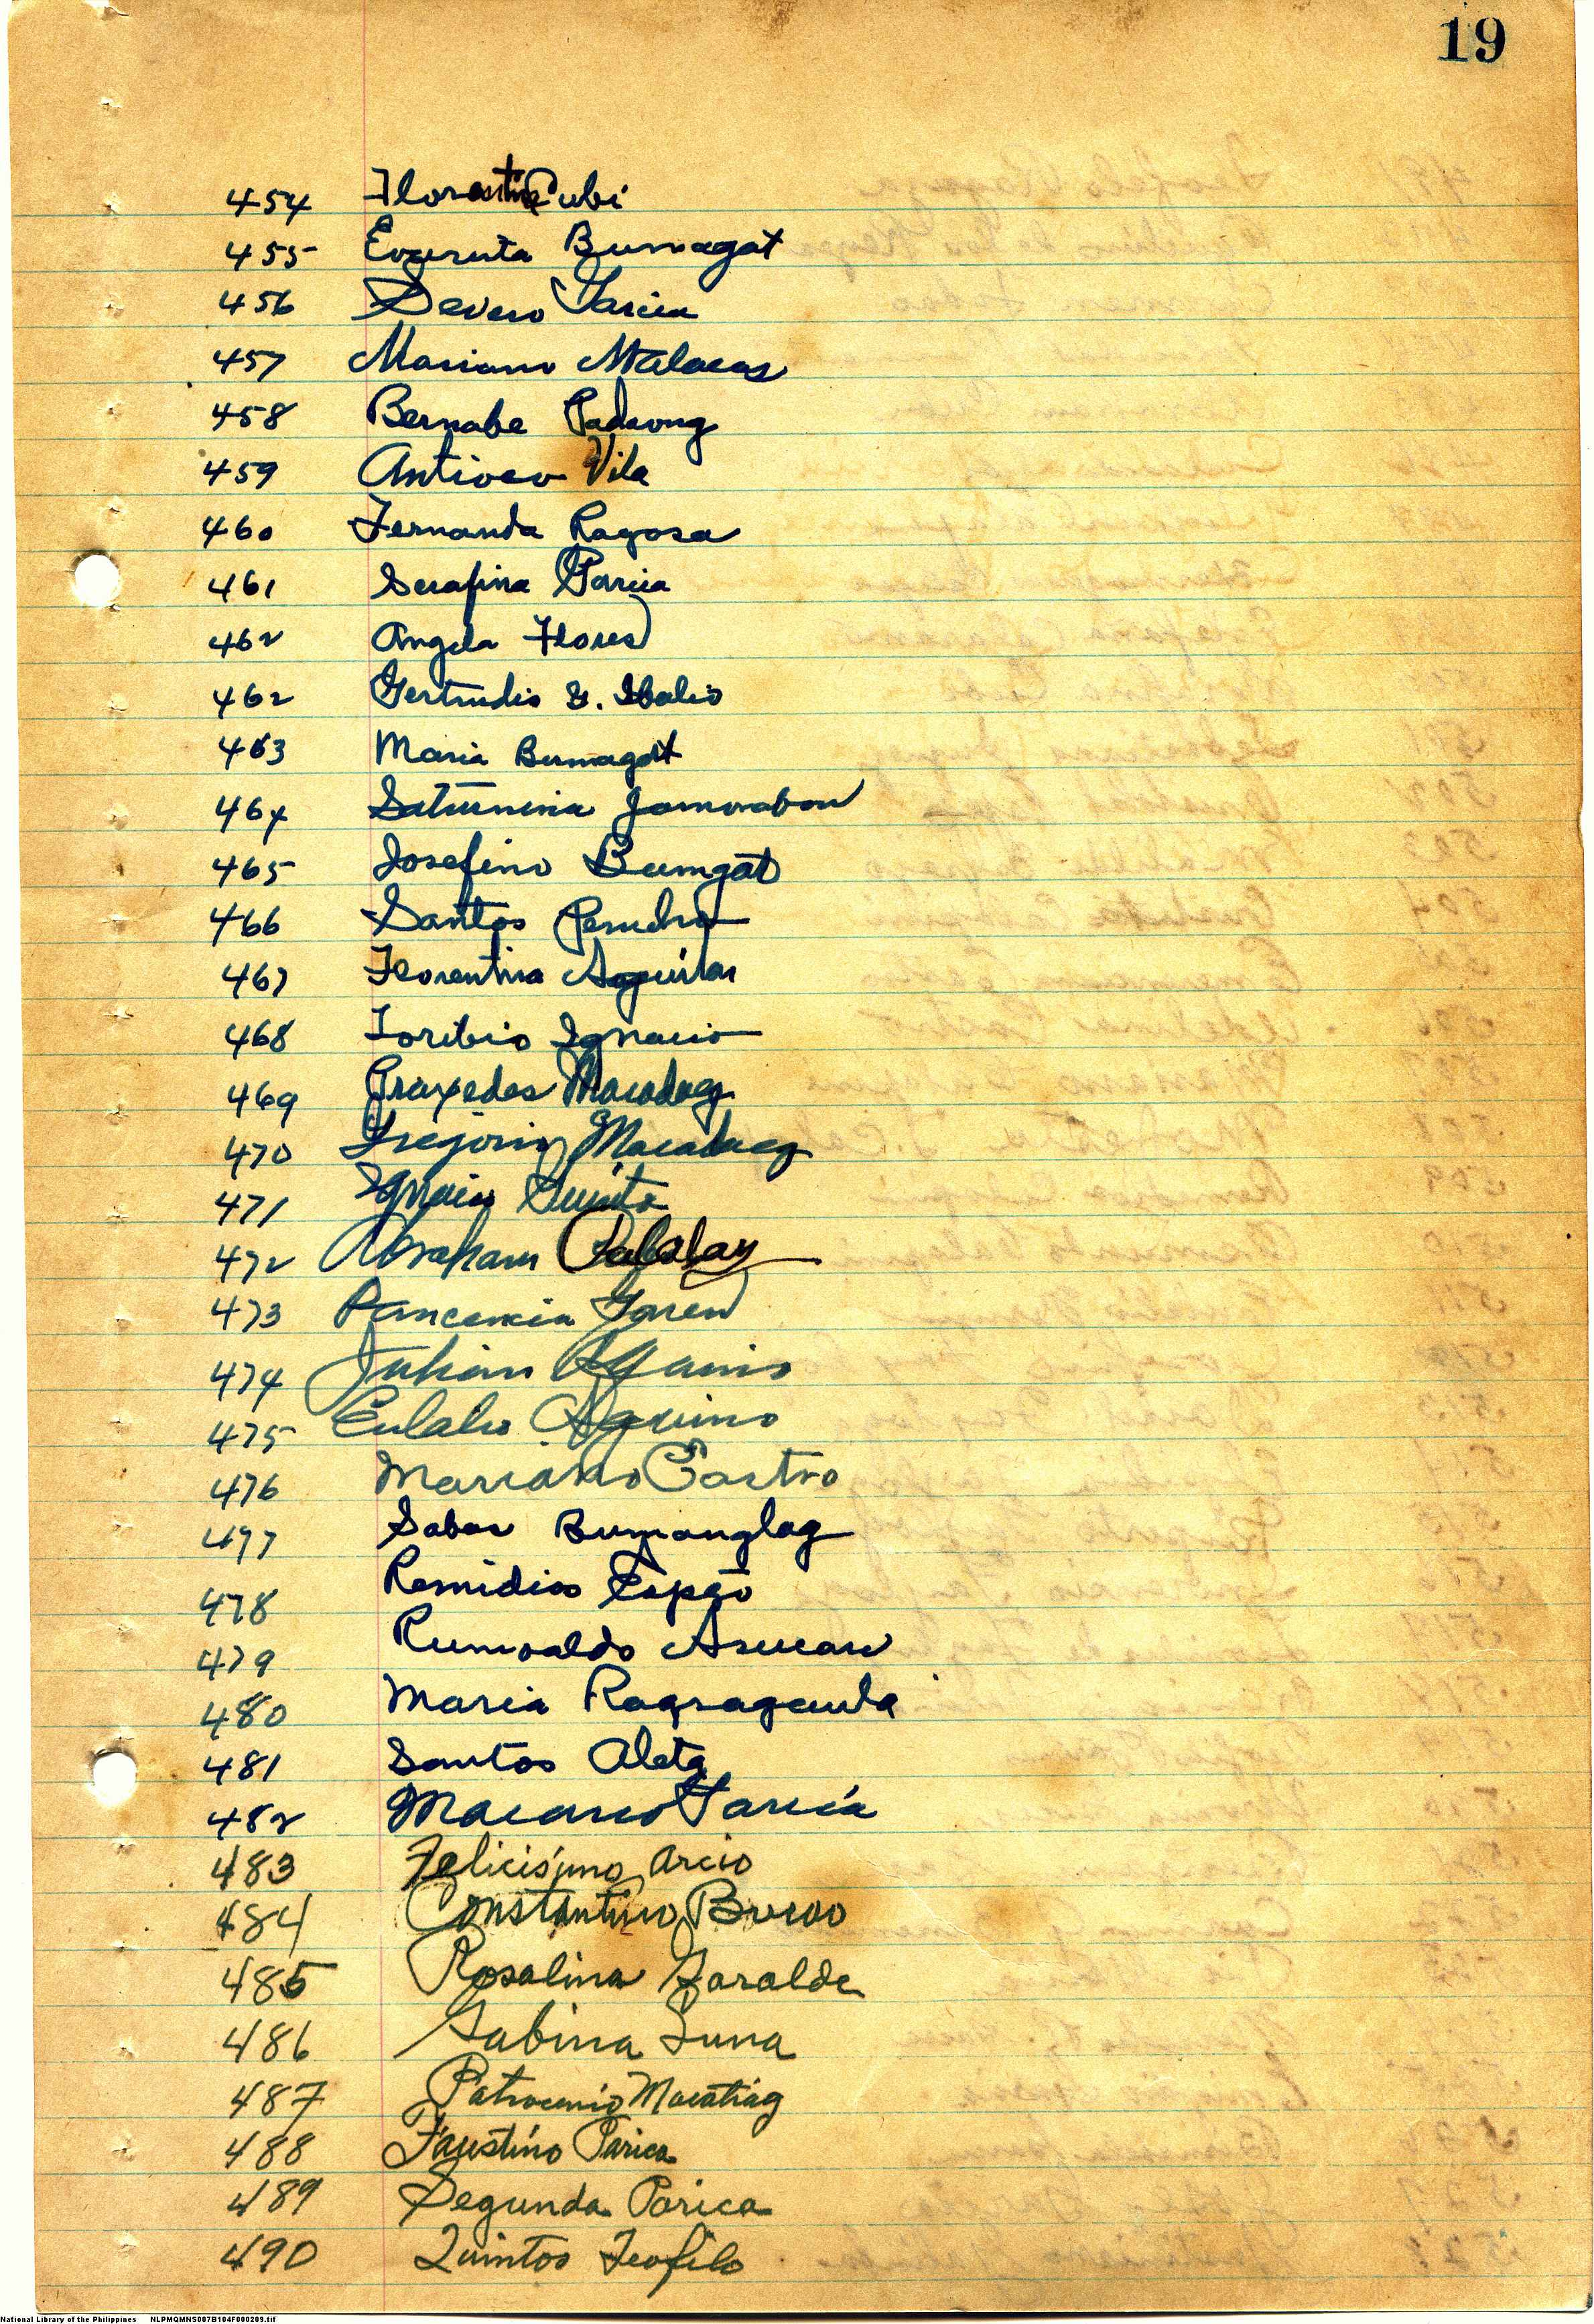 19
454 Florentino Cubi
455 Evarista Bumagat
456 Severo Garcia
457 Mariano Malacas
458 Bernabe Padaong
459 Antioco Vila
460 Fernanda Ragosa
461 Serafina Garcia
462 Angela Flores
462 Gertrudis G. Ibalio
463 Maria Bumagat
464 Saturnina Jamorabon
465 Josefino Bumgat
466 Santos
467 Florentina Aaguilar
468 Toribio Ignacio
469 Praxedes Macadaeg
470 Gregorio Macadaeg
471 Ignacio Quinto
472 Abraham Palalay
473
474 Julian
475 Eulalio Aquino
476 Mariano Castro
497 Sabas Bumanglag
478 Remidios
479 Rumoaldo Asuncion
480 Maria Ragragaula
481 Santos Aleta
482 Macario Garcia
483 Felicisimo Arcio
484 Constantino Bueno
485 Rosalina Garalde
486 Sabina Luna
487 Patrocinio Macatiag
488 Faustino Parica
489 Segunda Parica
490 Quintos Teofilo
National Library of the Philippines NLPMQMNS007B104F000209.tif